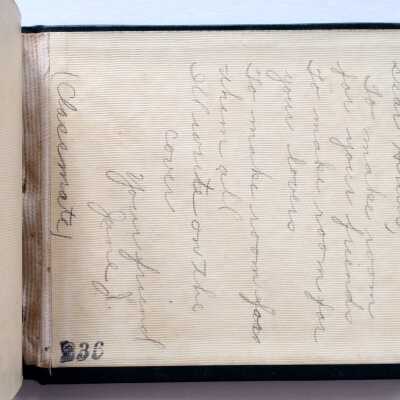 Dear
To make room
for your friends
To make room for
your lovers
To make room for
them all
I'll write on the
cover
Your friend
Jane J.
(Classmate)
236